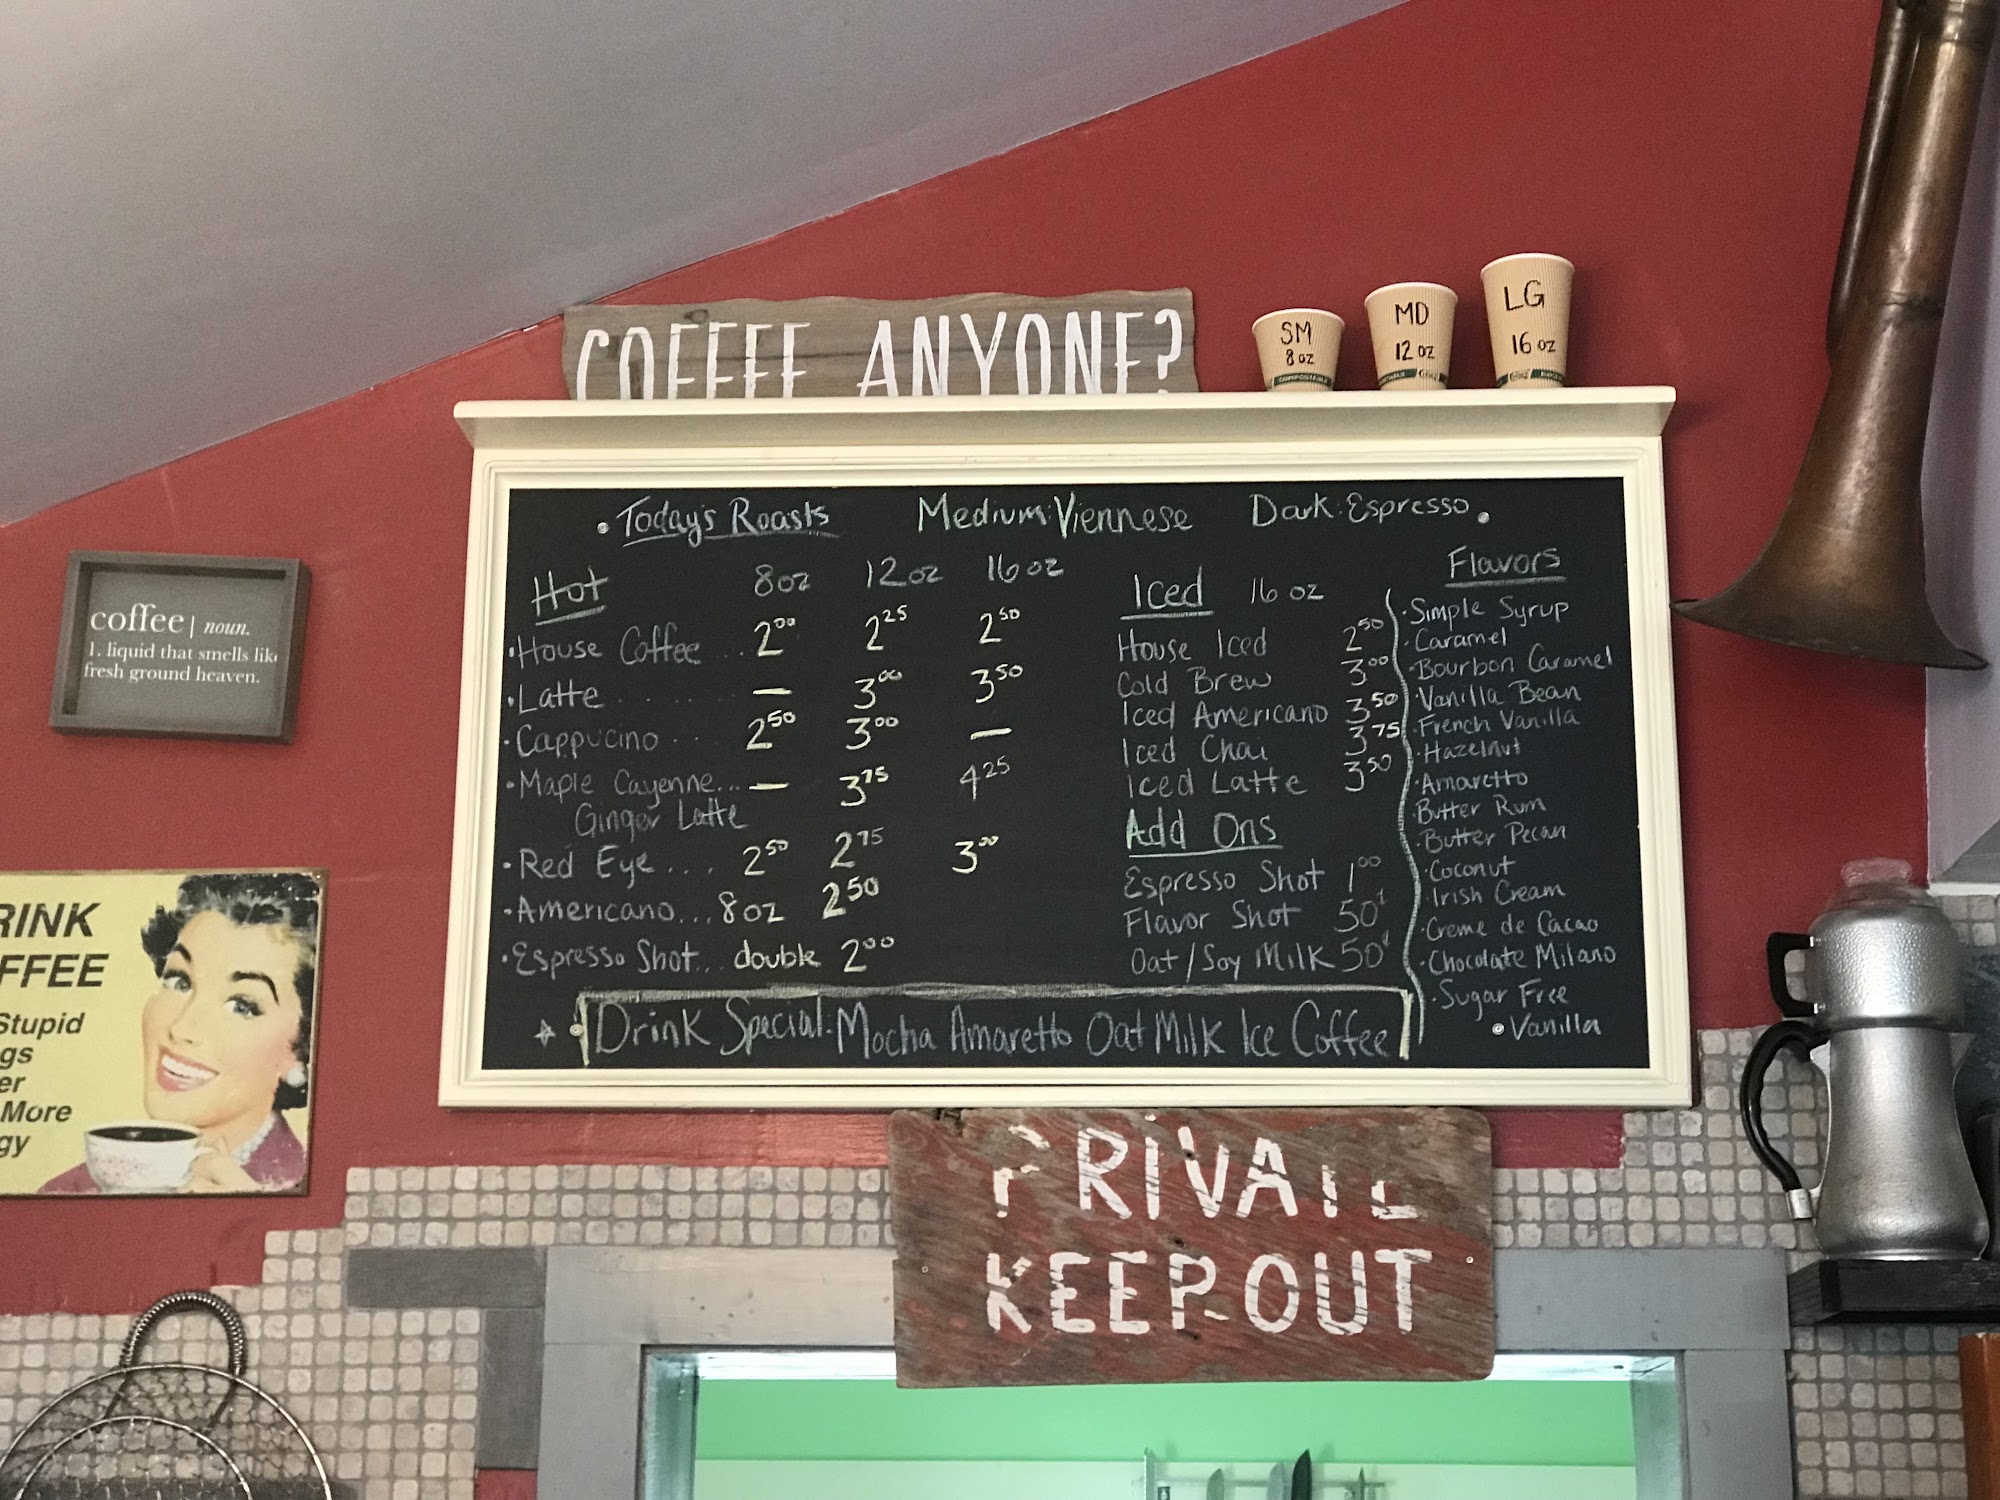 COFFEE ANYONE?
SM
8 oz
COMPOSTABLE
MD
12 oz
LG
16 oz
Today's Roasts Medium: Viennese Dark: Espresso
Hot 8oz 12oz 16oz
• House Coffee .. 2⁰⁰ 2²⁵ 2⁵⁰
• Latte ...... — 3⁰⁰ 3⁵⁰
• Cappucino ... 2⁵⁰ 3⁰⁰ —
• Maple Cayenne... — 3⁷⁵ 4²⁵
Ginger Latte
• Red Eye.... 2⁵⁰ 2⁷⁵ 3⁰⁰
• Americano... 8oz 2⁵⁰
• Espresso Shot... double 2⁰⁰
Iced 16 oz
House Iced 2⁵⁰
Cold Brew 3⁰⁰
Iced Americano 3⁵⁰
Iced Chai 3⁷⁵
Iced Latte 3⁵⁰
Add Ons
Espresso Shot 1⁰⁰
Flavor Shot 50¢
Oat/Soy Milk 50¢
Flavors
• Simple Syrup
• Caramel
• Bourbon Caramel
• Vanilla Bean
• French Vanilla
• Hazelnut
• Amaretto
• Butter Rum
• Butter Pecan
• Coconut
• Irish Cream
• Creme de Cacao
• Chocolate Milano
• Sugar Free
• Vanilla
Drink Special - Mocha Amaretto Oat Milk Ice Coffee
coffee | noun.
1. liquid that smells like
fresh ground heaven.
RINK
FFEE
Stupid
gs
er
More
gy
PRIVATE
KEEP OUT